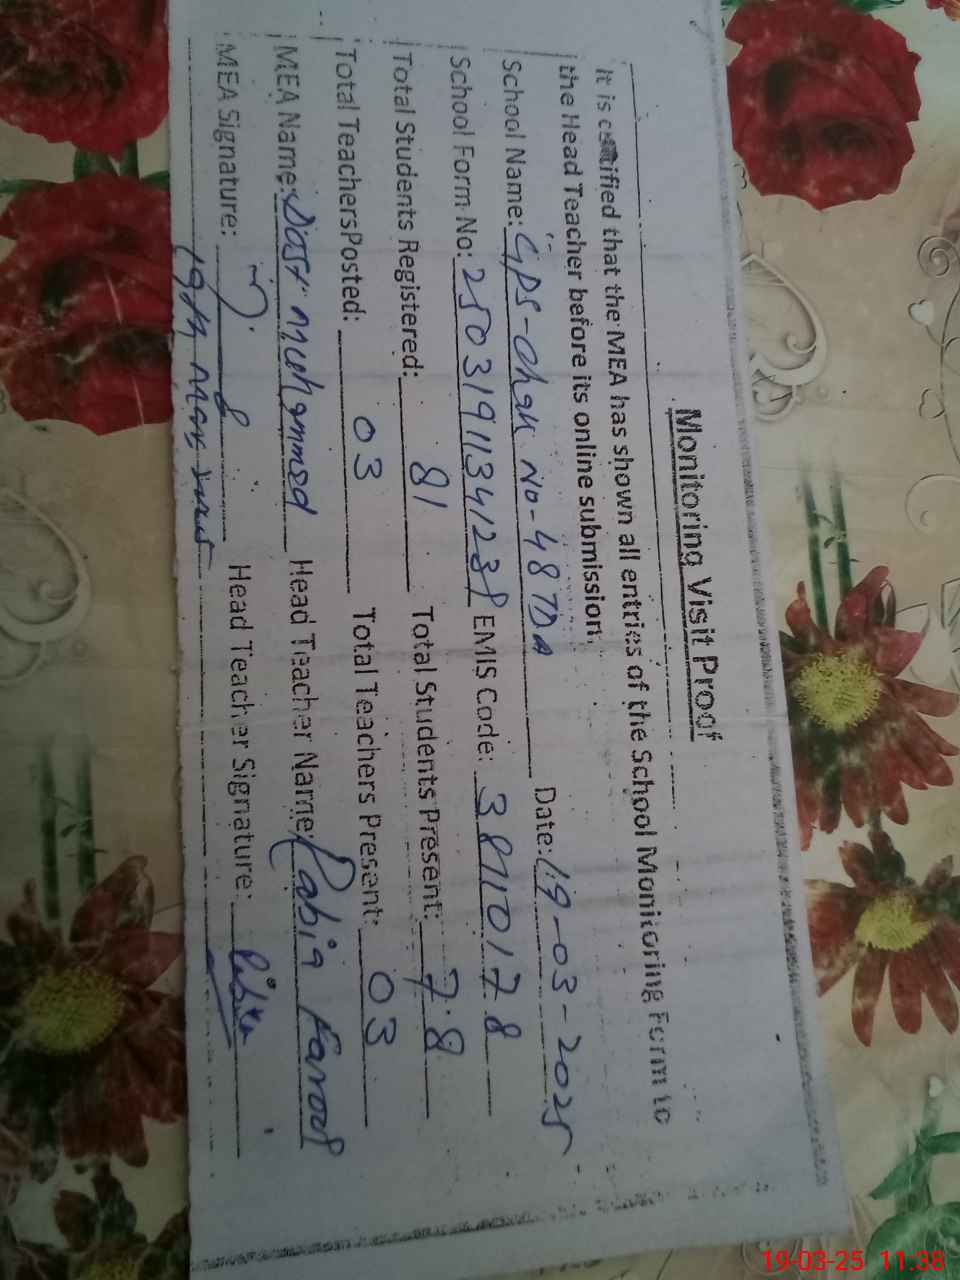 Monitoring Visit Proof
It is certified that the MEA has shown all entries of the School Monitoring Form to
the Head Teacher before its online submission.
School Name: GPS-Chak No-48 TDA Date: 19-03-2025
School Form No: EMIS Code:
Total Students Registered: 81 Total Students Present: 78
Total TeachersPosted: 03 Total Teachers Present: 03
MEA Name: Dost Muhammad Head Teacher Name: Rabia Farooq
MEA Signature: Head Teacher Signature: Rabia
19-03-25 11.38